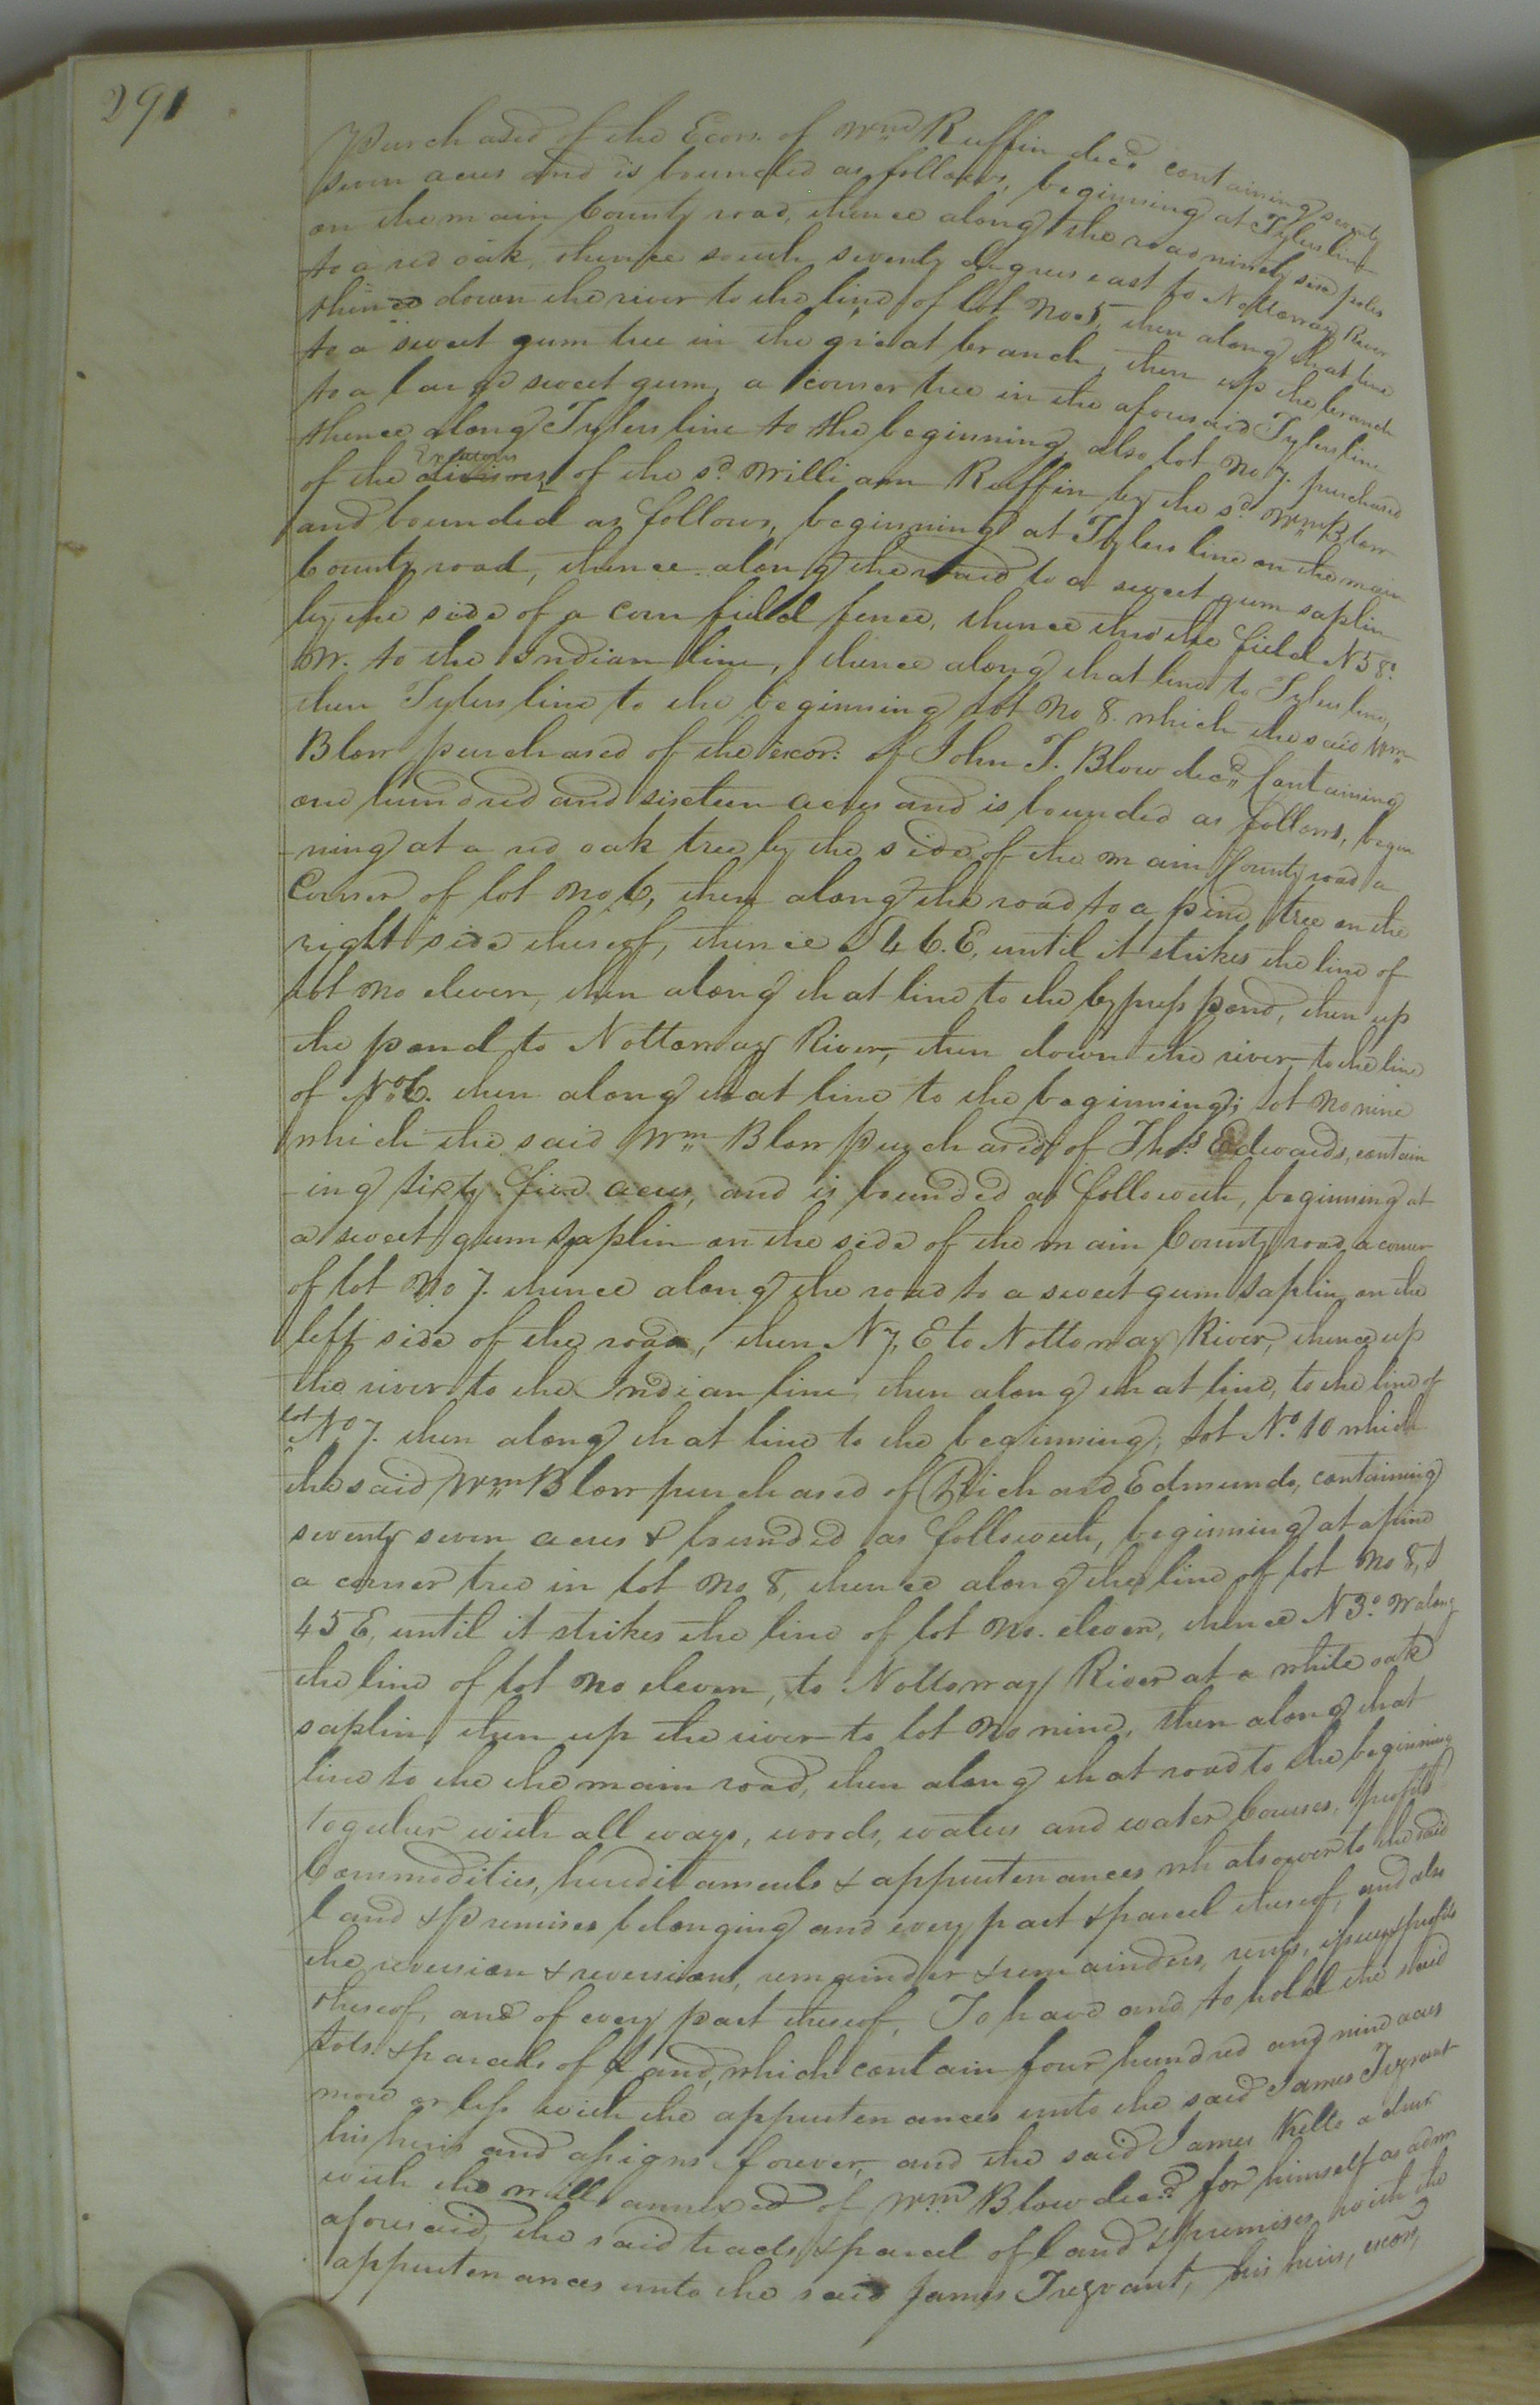 291
Purchased of the Ecors. of Wm Ruffin decd containing seventy
seven acres and is bounded as follows, beginning at Tylers line
on the main County road, thence along the road ninety six poles
to a red oak, thence south seventy degrees east to Nottoway River
thence down the river to the line of lot No 5, then along that line
to a sweet gum tree in the great branch, then up the branch
to a large sweet gum, a corner tree in the aforesaid Tylers line
thence along Tylers line to the beginning, also lot No 7. purchased
of the Executors of the sd. William Ruffin by the sd. Wm Blow
and bounded as follows, beginning at Tylers line on the main
County road, thence along the road to a sweet gum saplin
by the side of a corn field fence, thence thro' the field N 58.
W. to the Indian line, thence along that line to Tylers line,
then Tylers line to the beginning lot No 8. which the said Wm
Blow purchased of the excor: of John T. Blow decd. Containing
one hundred and sixteen acres and is bounded as follows, begin
-ning at a red oak tree by the side of the main County road a
Corner of lot No 6, then along the road to a pine tree on the
right side thereof, thence S 46. E, until it strikes the line of
lot No eleven, then along that line to the Cypress pond, then up
the pond to Nottoway River, then down the river to the line
of No. 6. then along that line to the beginning; lot No nine
which the said Wm Blow purchased of Thos. Edwards, contain
-ing sixty five acres, and is bounded as followeth, beginning at
a sweet gum saplin on the side of the main County road a corner
of lot No 7. thence along the road to a sweet gum saplin on the
left side of the road, then N 7, E to Nottoway River, thence up
the river to the Indian line then along that line, to the line of
lot No 7. then along that line to the beginning, lot No. 10 which
the said Wm Blow purchased of Richard Edmunds, containing
seventy seven acres & bounded as followeth, beginning at a pine
a corner tree in lot No 8, thence along the line of lot No 8, S
45 E, until it strikes the line of lot No. eleven, thence N 3° W along
the line of lot No eleven, to Nottoway River at a white oak
saplin, then up the river to lot No nine, then along that
line to the the main road, then along that road to the beginning
together with all ways, woods, waters and water Courses, profits
Commodities, hereditaments & appurtenances whatsoever to the said
land & premises belonging and every part & parcel thereof, and also
the reversion & reversions, remainder & remainders, rents, issues & profits
thereof, and of every part thereof, To have and to hold the said
Lots & parcels of Land, which contain four hundred and nine acres
more or less with the appurtenances unto the said James Trezvant
his heirs and assigns forever, and the said James Kello admr.
with the will annexed of Wm. Blow decd. for himself as admr
aforesaid, the said tracts & parcel of land & premises with the
appurtenances unto the said James Trezvant, his heirs, excors,